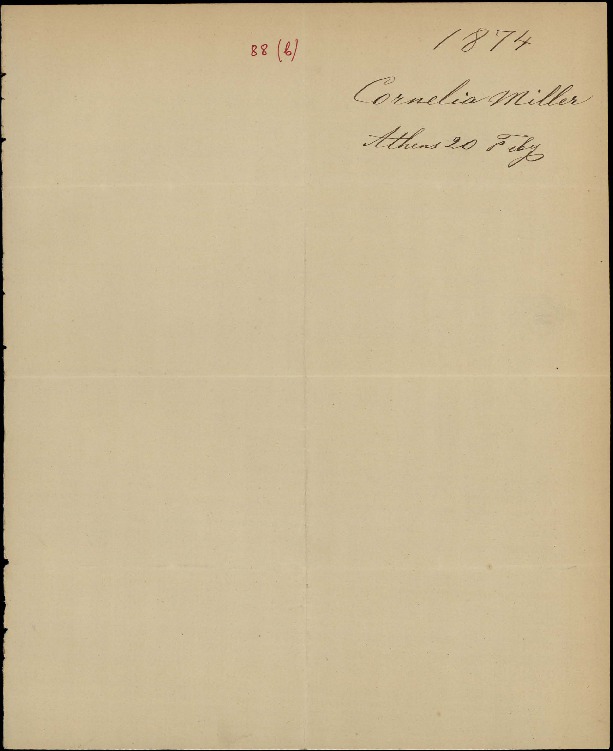 1874
88 (b)
Cornelia Miller
Athens 20 Feby